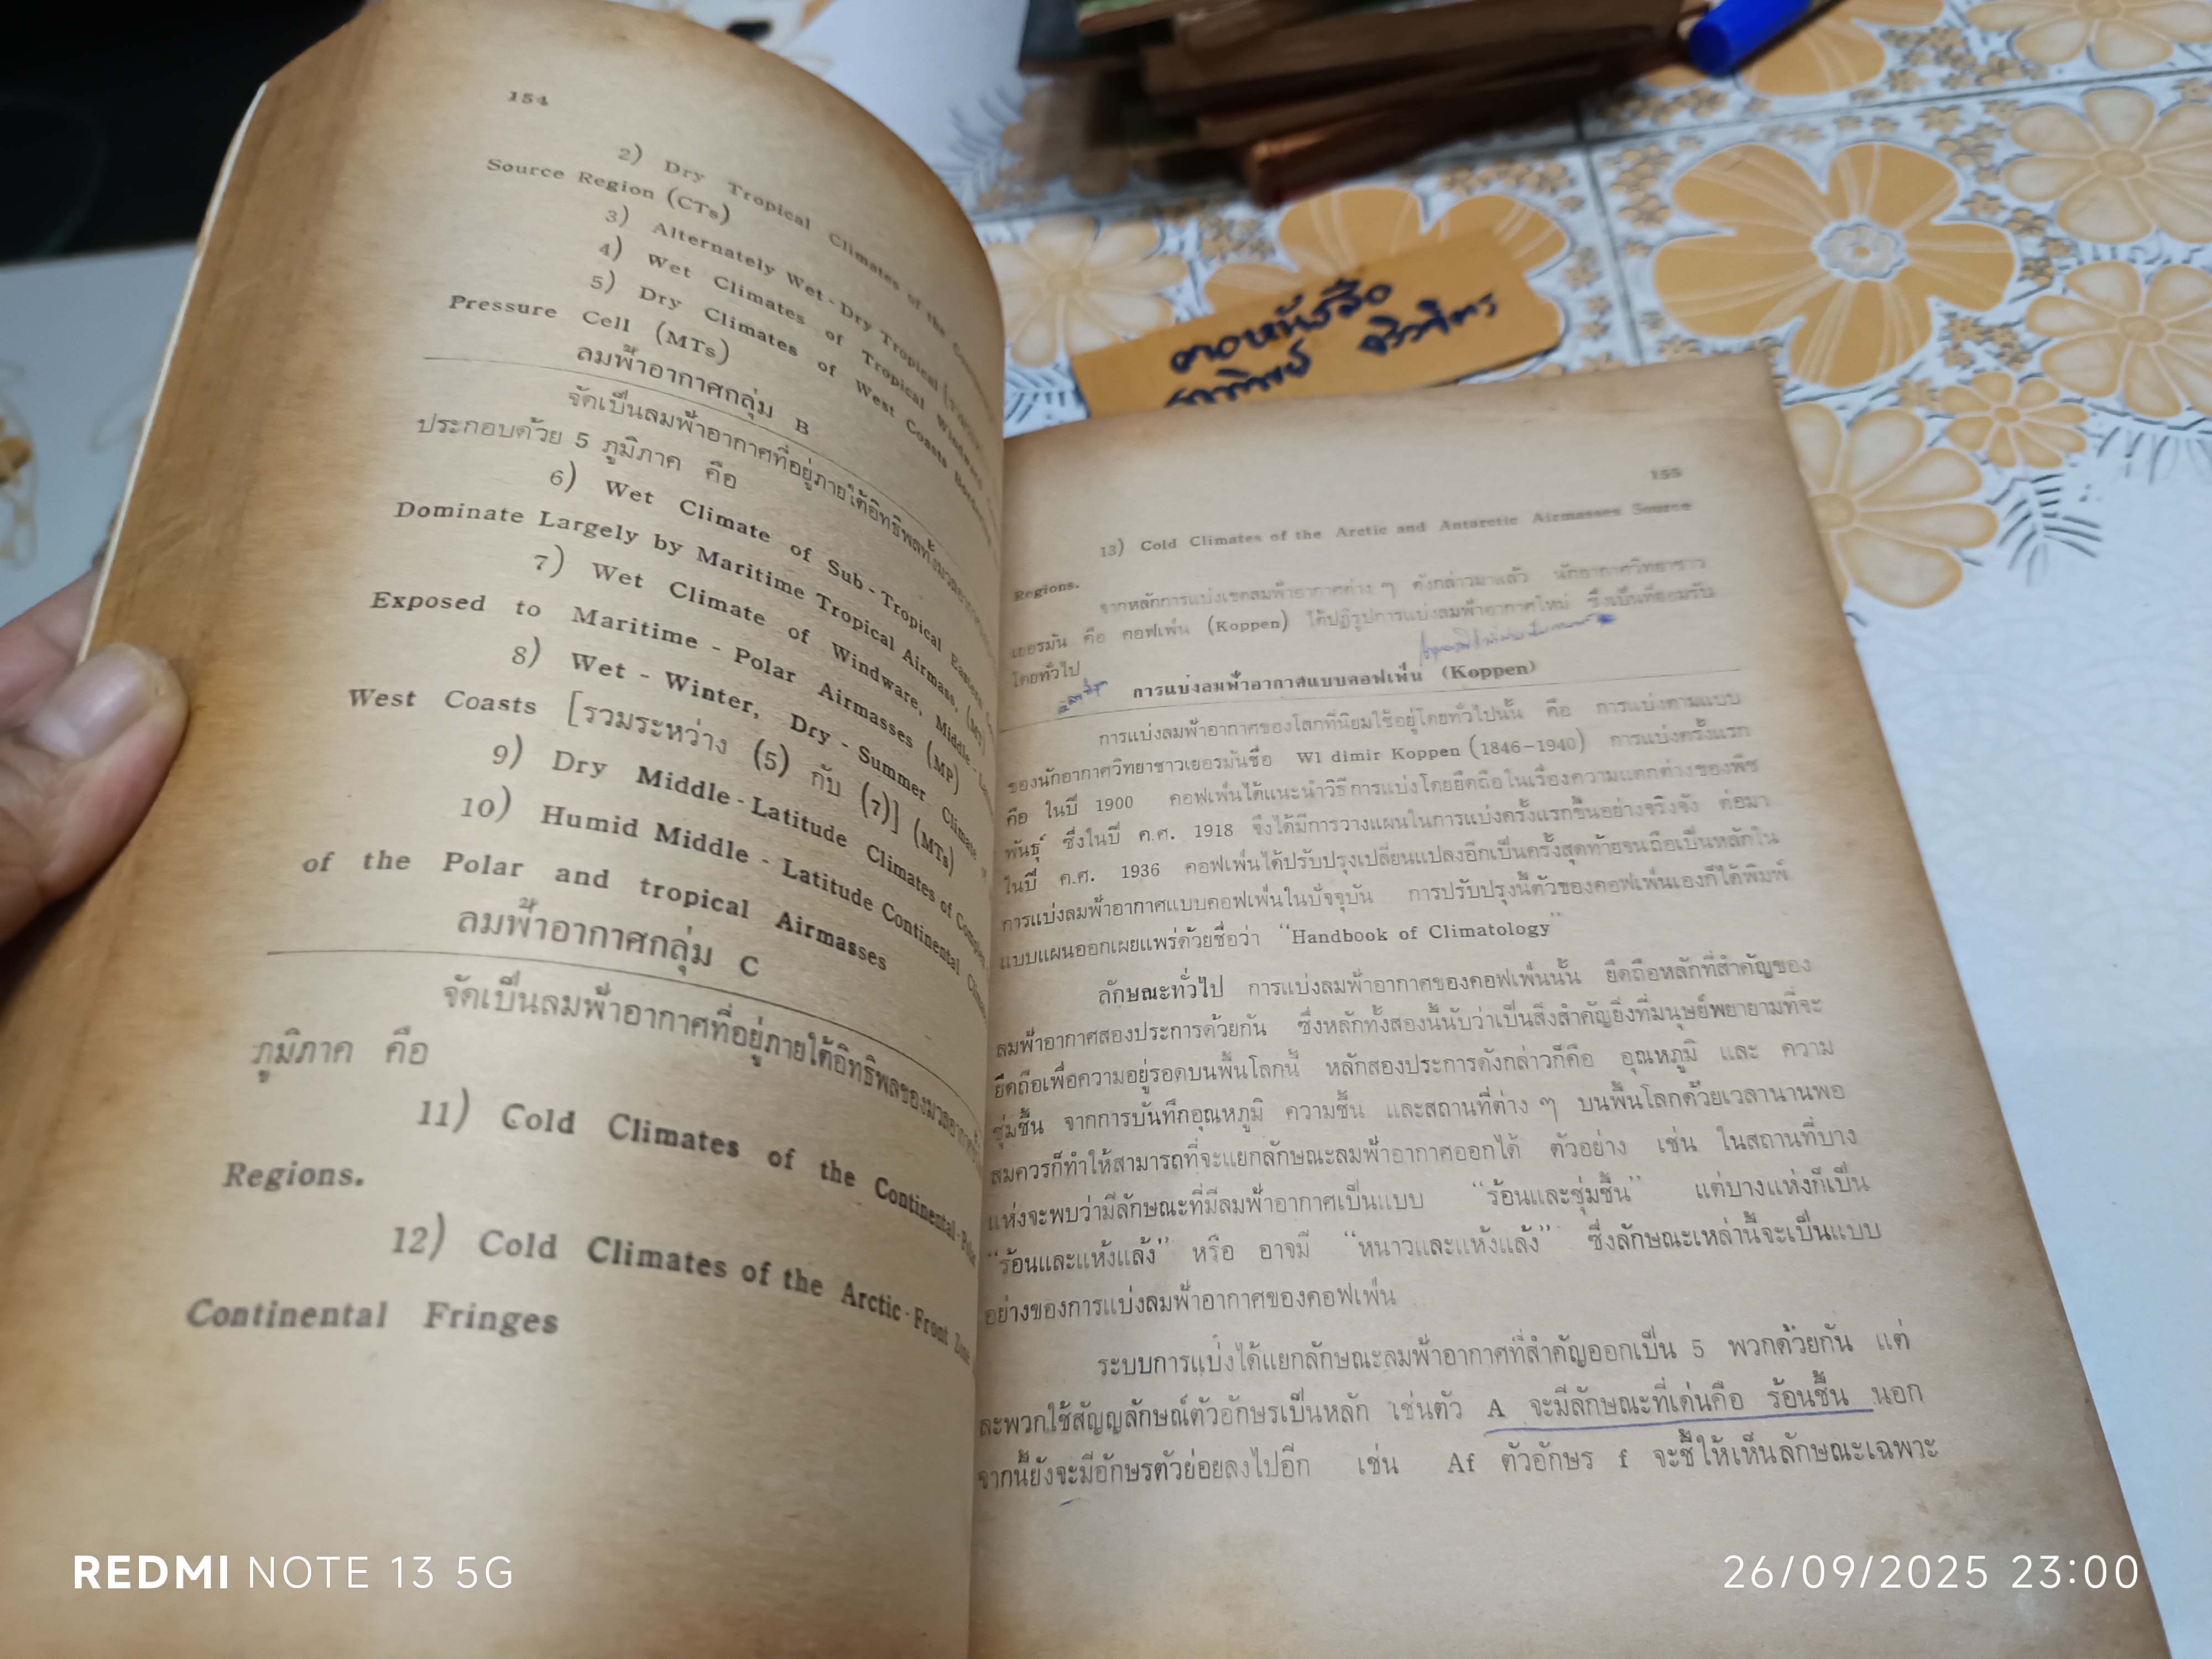 154
2) Dry Tropical Climates of the
Source Region (CTs)
3) Alternately Wet-Dry Tropical
4) Wet Climates of Tropical Windward
5) Dry Climates of West Coasts
Pressure Cell (MTs)
ลมฟ้าอากาศกลุ่ม B
จัดเป็นลมฟ้าอากาศที่อยู่ภายใต้อิทธิพล
ประกอบด้วย 5 ภูมิภาค คือ
6) Wet Climate of Sub-Tropical Eastern
Dominate Largely by Maritime Tropical Airmass, (MT)
7) Wet Climate of Windware, Middle-
Exposed to Maritime - Polar Airmasses (MP)
8) Wet - Winter, Dry - Summer Climate
West Coasts [รวมระหว่าง (5) กับ (7)] (MTs)
9) Dry Middle-Latitude Climates of
10) Humid Middle - Latitude Continental
of the Polar and tropical Airmasses
ลมฟ้าอากาศกลุ่ม C
จัดเป็นลมฟ้าอากาศที่อยู่ภายใต้อิทธิพลของมวลอากาศ
ภูมิภาค คือ
11) Cold Climates of the Continental-Polar
Regions.
12) Cold Climates of the Arctic-Front Zone
Continental Fringes
155
13) Cold Climates of the Arctic and Antarctic Airmasses Source
Regions.
จากหลักการแบ่งเขตลมฟ้าอากาศต่าง ๆ ดังกล่าวมาแล้ว นักอากาศวิทยาชาว
เยอรมัน คือ คอฟเพ่น (Koppen) ได้ปฏิรูปการแบ่งลมฟ้าอากาศใหม่ ซึ่งเป็นที่ยอมรับ
โดยทั่วไป
การแบ่งลมฟ้าอากาศแบบคอฟเพ่น (Koppen)
การแบ่งลมฟ้าอากาศของโลกที่นิยมใช้อยู่โดยทั่วไปนั้น คือ การแบ่งตามแบบ
ของนักอากาศวิทยาชาวเยอรมันชื่อ Wl dimir Koppen (1846-1940) การแบ่งครั้งแรก
คือ ในปี 1900 คอฟเพ่นได้แนะนำวิธีการแบ่งโดยยึดถือในเรื่องความแตกต่างของพืช
พันธุ์ ซึ่งในปี ค.ศ. 1918 จึงได้มีการวางแผนในการแบ่งครั้งแรกขึ้นอย่างจริงจัง ต่อมา
ในปี ค.ศ. 1936 คอฟเพ่นได้ปรับปรุงเปลี่ยนแปลงอีกเป็นครั้งสุดท้ายจนถือเป็นหลักใน
การแบ่งลมฟ้าอากาศแบบคอฟเพ่นในปัจจุบัน การปรับปรุงนี้ตัวของคอฟเพ่นเองก็ได้พิมพ์
แบบแผนออกเผยแพร่ด้วยชื่อว่า "Handbook of Climatology"
ลักษณะทั่วไป การแบ่งลมฟ้าอากาศของคอฟเพ่นนั้น ยึดถือหลักที่สำคัญของ
ลมฟ้าอากาศสองประการด้วยกัน ซึ่งหลักทั้งสองนี้นับว่าเป็นสิ่งสำคัญยิ่งที่มนุษย์พยายามที่จะ
ยึดถือเพื่อความอยู่รอดบนพื้นโลกนี้ หลักสองประการดังกล่าวก็คือ อุณหภูมิ และ ความ
ชุ่มชื้น จากการบันทึกอุณหภูมิ ความชื้น และสถานที่ต่าง ๆ บนพื้นโลกด้วยเวลานานพอ
สมควรก็ทำให้สามารถที่จะแยกลักษณะลมฟ้าอากาศออกได้ ตัวอย่าง เช่น ในสถานที่บาง
แห่งจะพบว่ามีลักษณะที่มีลมฟ้าอากาศเป็นแบบ "ร้อนและชุ่มชื้น" แต่บางแห่งก็เป็น
"ร้อนและแห้งแล้ง" หรือ อาจมี "หนาวและแห้งแล้ง" ซึ่งลักษณะเหล่านี้จะเป็นแบบ
อย่างของการแบ่งลมฟ้าอากาศของคอฟเพ่น
ระบบการแบ่งได้แยกลักษณะลมฟ้าอากาศที่สำคัญออกเป็น 5 พวกด้วยกัน แต่
ละพวกใช้สัญญลักษณ์ตัวอักษรเป็นหลัก เช่นตัว A จะมีลักษณะที่เด่นคือ ร้อนชื้น นอก
จากนี้ยังจะมีอักษรตัวย่อยลงไปอีก เช่น Af ตัวอักษร f จะชี้ให้เห็นลักษณะเฉพาะ
REDMI NOTE 13 5G
26/09/2025 23:00